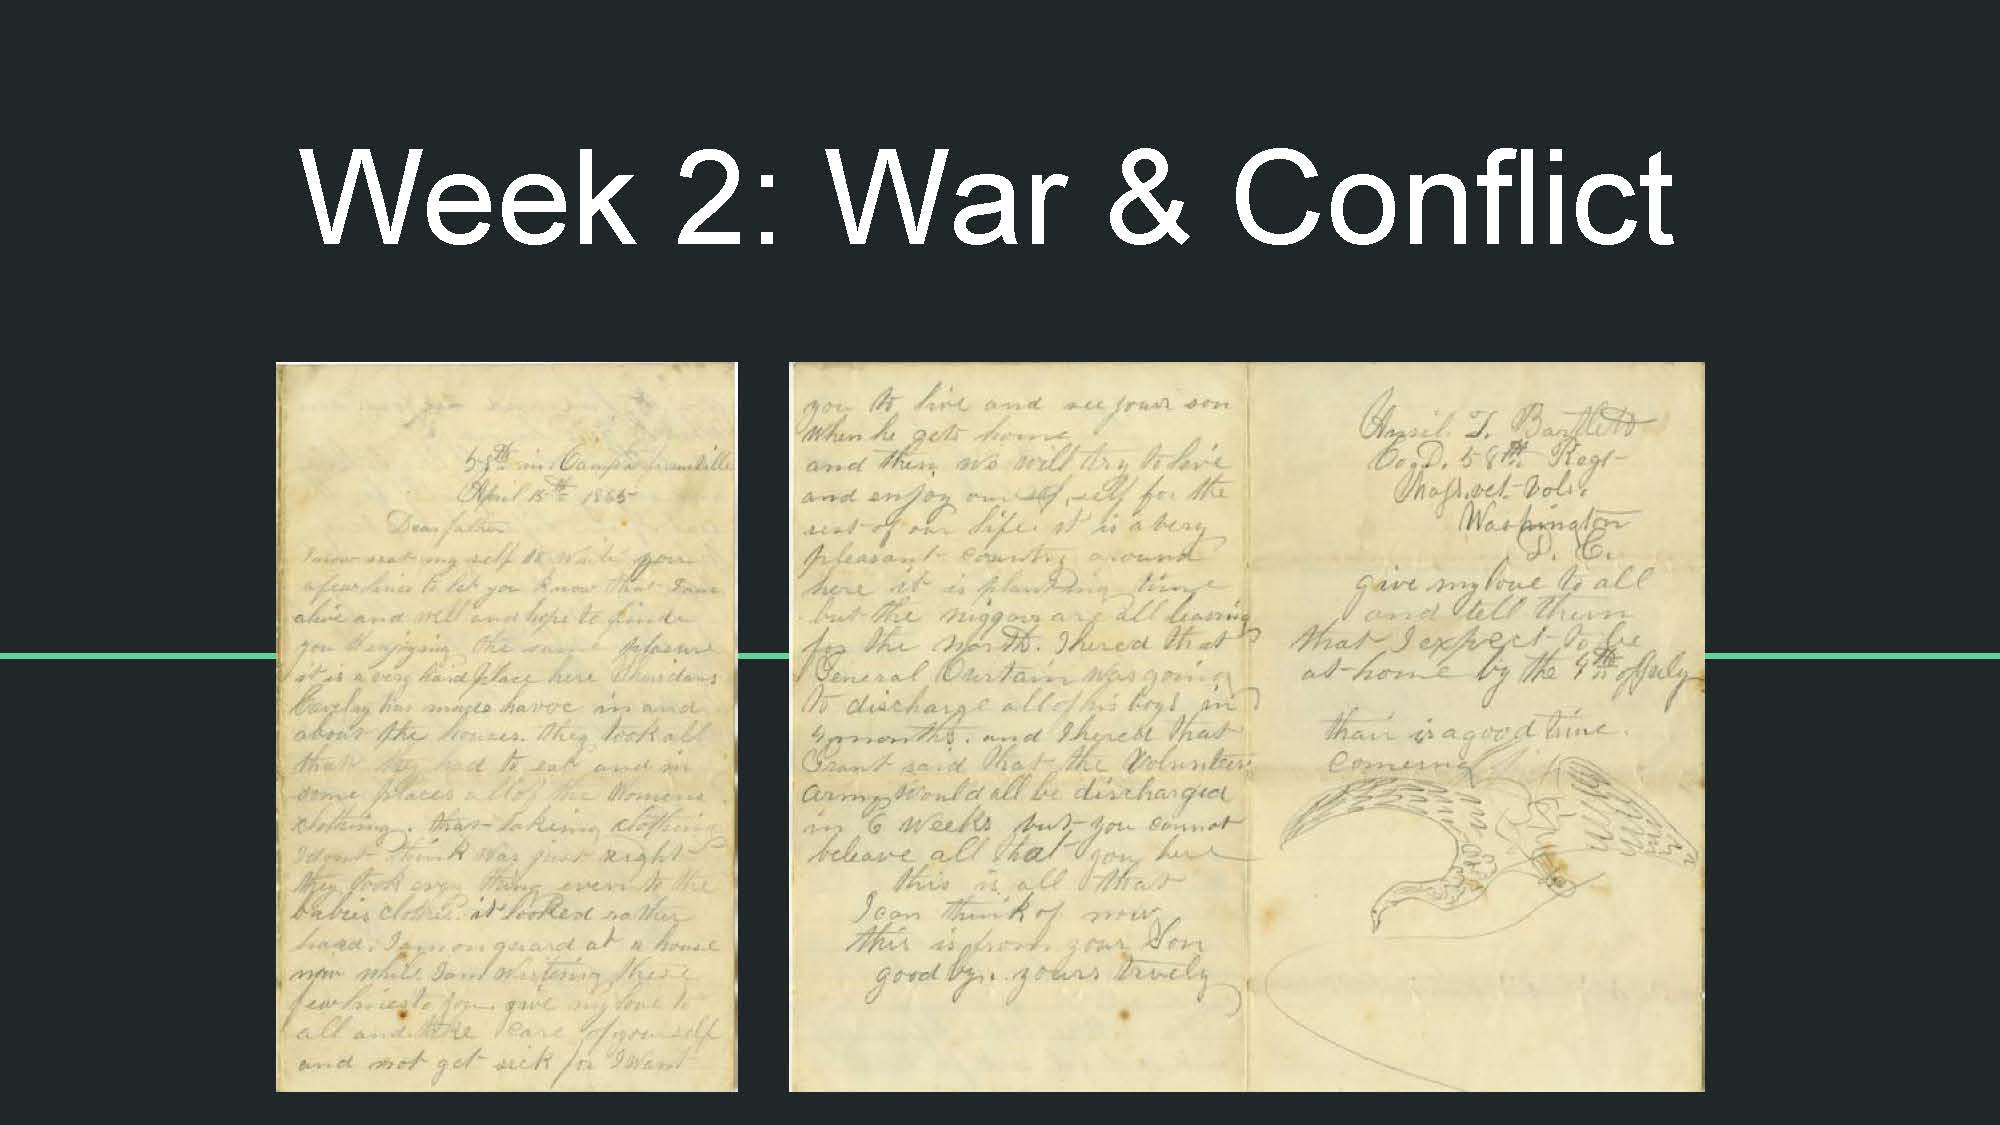 Week 2: War & Conflict
58th in Camp
April 15th 1865
Dear father
I now seat my self to write you
a few lines to let you know that I am
alive and well and hope to find
you the same
it is a very hard place here
has made havoc in and
about the houses. they took all
that they had to eat and in
some places all of the Womens
clothing. that taking clothing
I dont think was just right
they took evry thing even to the
babies clothes. it looked rather
haad. I am on guard at a house
now while I am writeing these
few lines to you give my love to
all and take care of yourself
and not get sick for I want
you to live and see your son
when he gets home
and then we will try to live
and enjoy our self for the
rest of our life. it is a very
pleasant country around
here it is planting time
but the niggars are all leaving
for the north. I hered that
General Curtain was going
to discharge all of his boys in
months. and I hered that
Grant said that the Volunteer
army would all be discharged
in 6 weeks but you cannot
beleave all that you here
this is all that
I can think of now
this is from your Son
good by. yours truely
Ansil T. Bartlett
Co. D. 58th Regt
Mass. vet. Vols.
Washington
D. C.
give my love to all
and tell them
that I expect to be
at home by the 4th of July
thair is a good time.
comeing